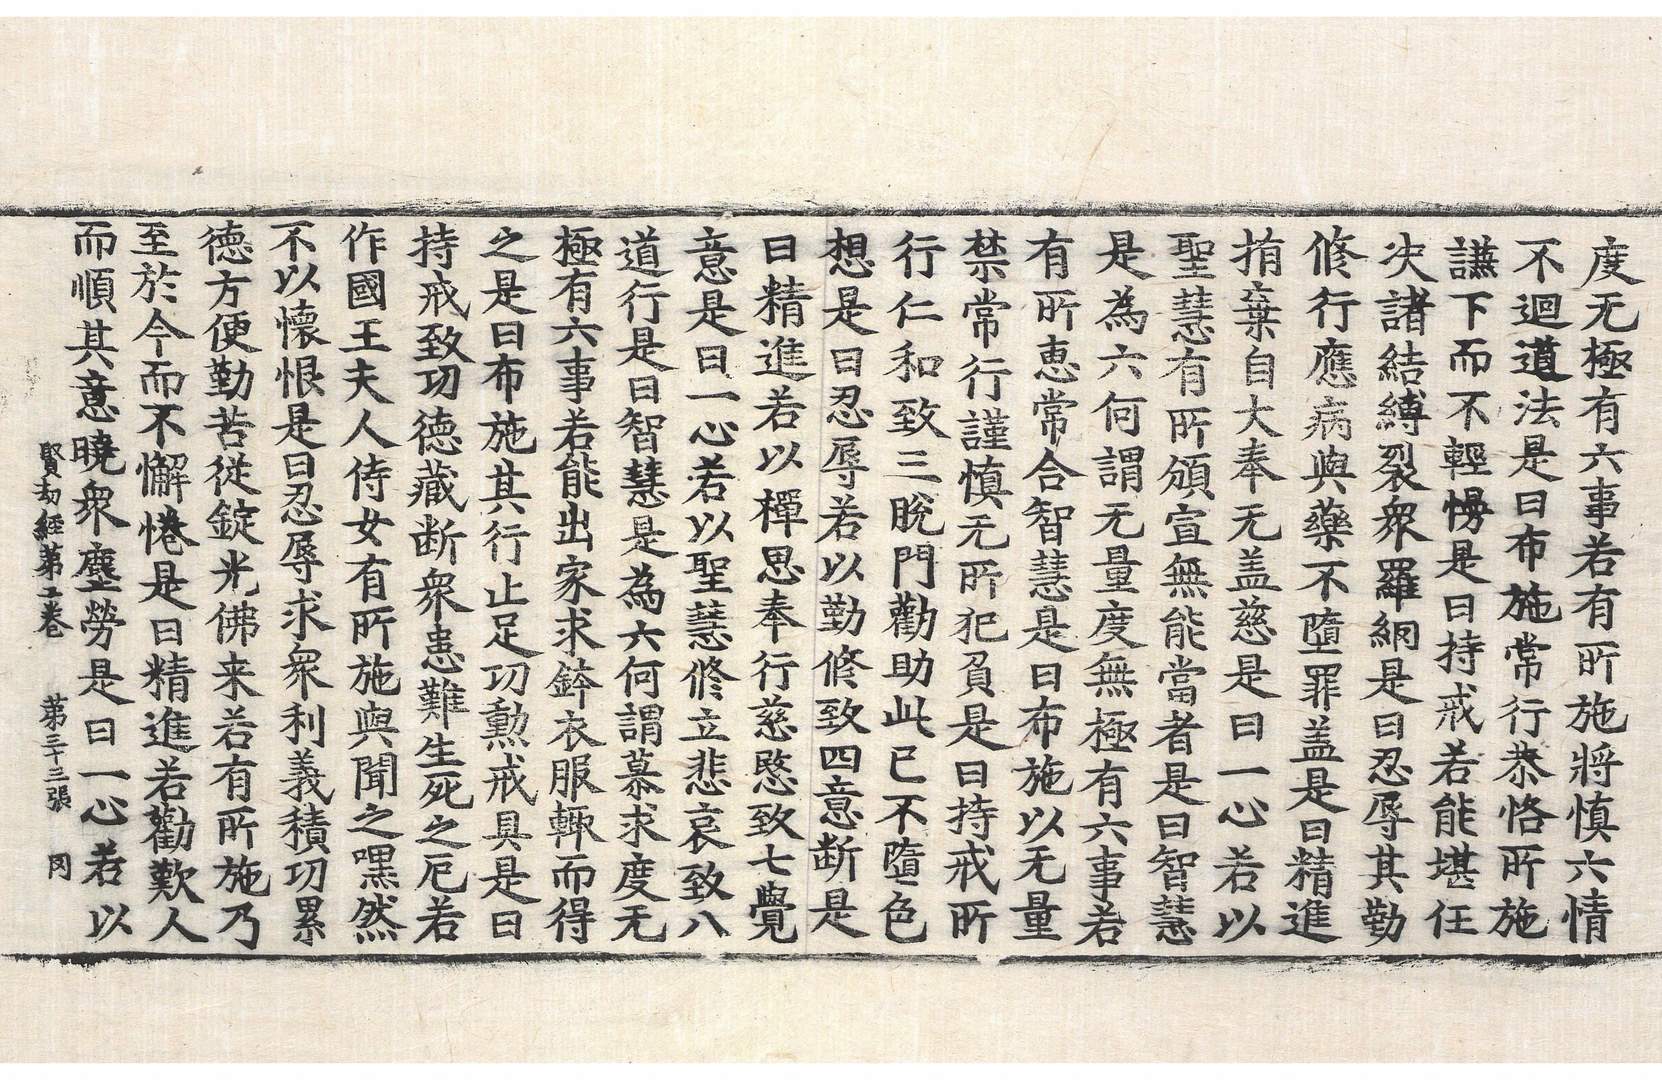 度无極有六事若有所施將慎六情
不迴道法是曰布施常行恭恪所施
謙下而不輕慢是曰持戒若能堪任
决諸結縛裂衆羅網是曰忍辱其勤
修行應病與藥不墮罪盖是曰精進
捐棄自大奉无盖慈是曰一心若以
聖慧有所頒宣無能當者是曰智慧
是為六何謂无量度無極有六事若
有所恵常合智慧是曰布施以无量
禁常行謹慎无所犯負是曰持戒所
行仁和致三脫門勸助此已不墮色
想是曰忍辱若以勤修致四意断是
曰精進若以樿思奉行慈愍致七覺
意是曰一心若以聖慧修立悲哀致八
道行是曰智慧是為六何謂慕求度无
極有六事若能出家求鉢衣服輙而得
之是曰布施其行止足功勲戒具是曰
持戒致功德藏断衆患難生死之厄若
作國王夫人侍女有所施與聞之嘿然
不以懐恨是曰忍辱求衆利義積功累
德方便勤苦従錠光佛来若有所施乃
至於今而不懈惓是曰精進若勸歎人
而順其意曉衆塵勞是曰一心若以
賢劫經第二卷 第三十三張 冈